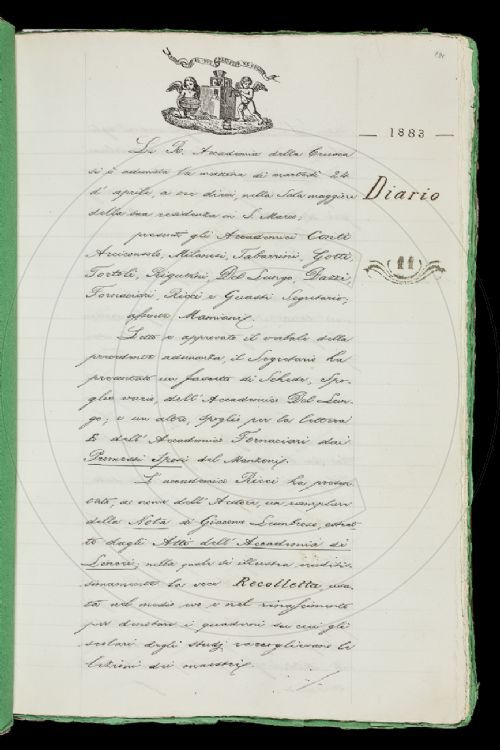 1883
Diario
11
La R. Accademia della Crusca
si è adunata la mattina di martedì 24
d'aprile, a ore dieci, nella Sala maggiore
della sua residenza in S. Marco;
presenti gli Accademici Conti
Arciconsolo, Milanesi, Tabarrini, Gotti,
Tortoli, Rigutini, Del Lungo, Dazzi,
Fornaciari, Ricci e Guasti Segretario;
assente Mannini.
Letto e approvato il verbale della
precedente adunanza, il Segretario ha
presentato un fascetto di Schede, Spo-
glio vario, dell'Accademico Del Lun-
go; e un altro, spoglio per la lettera
E dell'Accademico Fornaciari dai
Promessi Sposi del Manzoni.
L'accademico Ricci ha presen-
tato, a nome dell'Autore, un esemplare
della Nota di Giacomo Lumbroso, estrat-
to dagli Atti dell'Accademia di
Lincei, nella quale si illustra eruditis-
simamente la voce Recollecta, usa-
ta nel medio evo e nel rinascimento
per denotare i quaderni su cui gli
scolari degli studj raccoglievano le
lezioni dei maestri.